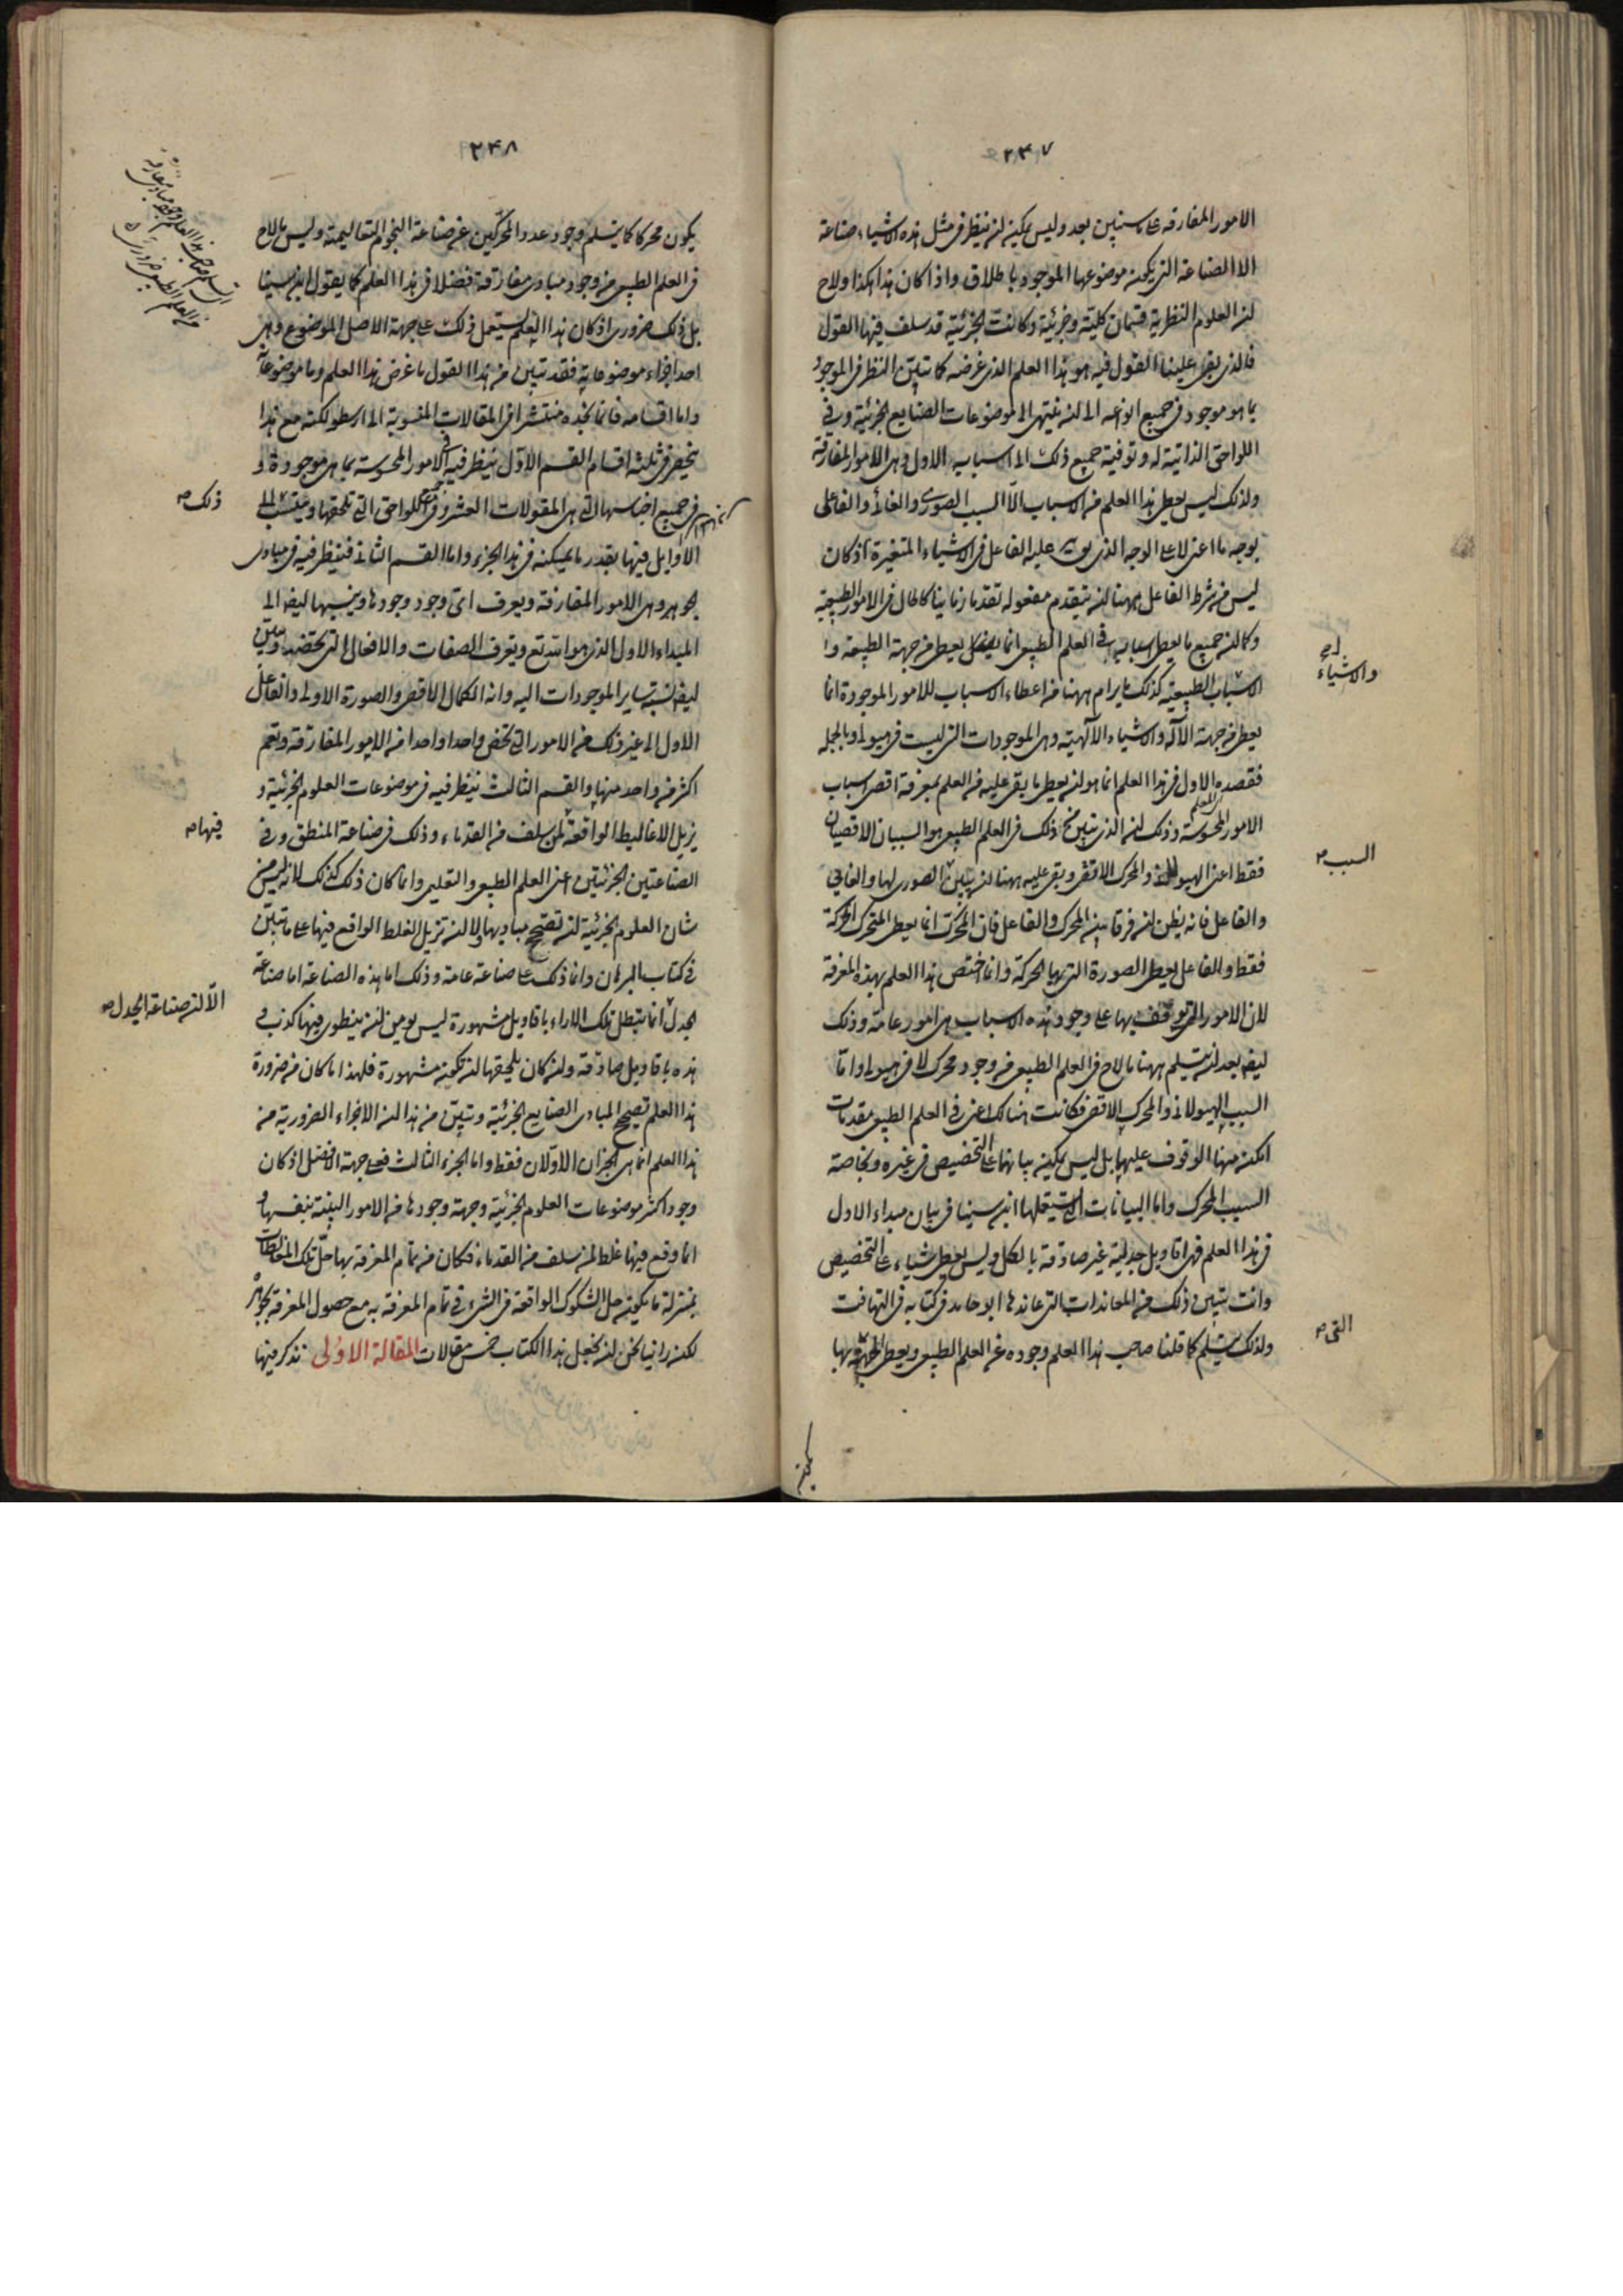 ٢٤٧
الامور المفارقه على ما سنبين بعد وليس يمكن ان ينظر فى مثل هذه الاشياء صناعة
الا الصناعة التى يكون موضوعها الموجود باطلاق واذا كان هذا هكذا ولاح
ان العلوم النظرية قسمان كلية وجزئية وكانت الجزئية قد سلف فيها القول
فالذى بقى علينا القول فيه هو هذا العلم الذى غرضه كما تبين النظر فى الموجود
بما هو موجود فى جميع انواعه الى ان ينتهى الى موضوعات الصنايع الجزئية وفى
اللواحق الذاتية له وتوفية جميع ذلك الى اسبابه الاول وهى الامور المفارقة
ولذلك ليس يعطى هذا العلم من الاسباب الا السبب الصورى والغائى والفاعلى
بوجه ما اعنى لا على الوجه الذى يقال عليه الفاعل فى الاشياء المتغيرة اذ كان
ليس من شرط الفاعل ههنا ان يتقدم مفعوله تقدما زمانيا كالحال فى الامور الطبيعية
وكما ان جميع ما يعطى اسبابه فى العلم الطبيعى انما يعطى من جهة الطبيعة و
الاسباب الطبيعية كذلك ما يرام ههنا من اعطاء الاسباب للامور الموجودة انما
يعطى من جهة الآله والاشياء الآلهية وهى الموجودات التى ليست فى هيولى وبالجملة
فقصده الاول فى هذا العلم انما هو ان يعطى ما بقى عليه من العلم بمعرفة اقصى اسباب
الامور المحسوسة وذلك ان الذى تبين من ذلك فى العلم الطبيعى هو السببان الاقصيان
فقط اعنى الهيولى والمحرك الاقصى وبقى عليه ههنا ان يبين الصورى لها والغائى
والفاعل فانه يظن ان فرقا بين المحرك والفاعل فان المحرك انما يعطى المتحرك الحركة
فقط والفاعل يعطى الصورة التى بها الحركة وانما اختص هذا العلم بهذه المعرفة
لان الامور التى توقف بها على وجود هذه الاسباب هى امور عامة وذلك
ايضا بعد ان يتسلم ههنا ما لاح فى العلم الطبيعى من وجود محرك لا فى هيولى واما
السبب الهيولانى والمحرك الاقصى فكانت هنالك اعنى فى العلم الطبيعى مقدمات
امكن منها الوقوف عليها بل ليس يمكن بيانهما على التخصيص فى غيره وبخاصة
السبب المحرك واما البيانات التى يستعملها ابن سينا فى بيان مبداء الاول
فى هذا العلم فهى اقاويل جدلية غير صادقة بالكل وليس يعطى شياء على التخصيص
وانت تتبين ذلك من المعاندات التى عاندها ابو حامد فى كتابه فى التهافت
ولذلك يتسلم كما قلنا صاحب هذا العلم وجوده عن العلم الطبيعى ويعطى الجهة بها
والاشياء
السبب ص
التى ص
٢٤٨
يكون محركا كما يتسلم وجود عدد المحركين عن صناعة النجوم التعاليمية وليس ما لاح
فى العلم الطبيعى من وجود مبادى مفارقة فضلا فى هذا العلم كما يقول ابن سينا
بل ذلك ضرورى اذ كان هذا العلم يستعمل ذلك على جهة الاصل الموضوع وهى
احد اجزاء موضوعاته فقد تبين من هذا القول ما غرض هذا العلم وما موضوعاته
واما اقسامه فانما نجده منتشرا فى المقالات المنسوبة الى ارسطو لكنه مع هذا
ينحصر فى ثلثة اقسام القسم الاول ينظر فيه فى الامور المحسوسة بما هى موجودة و
فى جميع اجناسها التى هى المقولات العشر وفى جميع اللواحق التى تلحقها وينسب الى
الاوايل فيها بقدر ما يمكنه فى هذا الجزء واما القسم الثانى فينظر فيه فى مبادى
الجوهر وهى الامور المفارقة ويعرف اى وجود وجودها وينسبها ايضا الى
المبداء الاول الذى هو الله تع ويعرف الصفات والافعال التى تخصه ويبين
ايضا نسبة ساير الموجودات اليه وانه الكمال الاقصى والصورة الاولى والفاعل
الاول الى غير ذلك من الامور التى تخص واحدا واحدا من الامور المفارقة وتعم
اكثر من واحد منها والقسم الثالث ينظر فيه فى موضوعات العلوم الجزئية و
يزيل الاغاليط الواقعة لمن سلف من القدماء وذلك فى صناعة المنطق وفى
الصناعتين الجزئيتين اعنى العلم الطبيعى والتعليمى وانما كان ذلك كذلك لانه ليس من
شان العلوم الجزئية ان تصحح مباديها ولا ان تزيل الغلط الواقع فيها على ما تبين
فى كتاب البرهان وانما ذلك على صناعة عامة وذلك اما هذه الصناعة اما صناعة
الجدل انما تبطل تلك الاراء باقاويل مشهورة ليس يومن ان ينطوى فيها كذب و
هذه باقاويل صادقة وان كان يلحقها ان تكون مشهورة فلهذا ما كان من ضرورة
هذا العلم تصحيح المبادى الصنايع الجزئية وتبين من هذا ان الاجزاء الضرورية من
هذا العلم انما هى الجزءان الاولان فقط واما الجزء الثالث فعلى جهة الافضل اذ كان
وجود اكثر موضوعات العلوم الجزئية وجهة وجودها من الامور البينة بنفسها و
انما وقع فيها غلط لمن سلف من القدماء فكان من تمام المعرفة بها حل تلك المغالطات
بمنزلة ما يكون حل الشكوك الواقعة فى الشىء فى تمام المعرفة به مع حصول المعرفة بجوهره
لكن راينا نحن ان نجعل هذا الكتاب خمس مقالات المقالة الاولى نذكر فيها
ذلك ص
فيها ص
الا ان صناعة الجدل ص